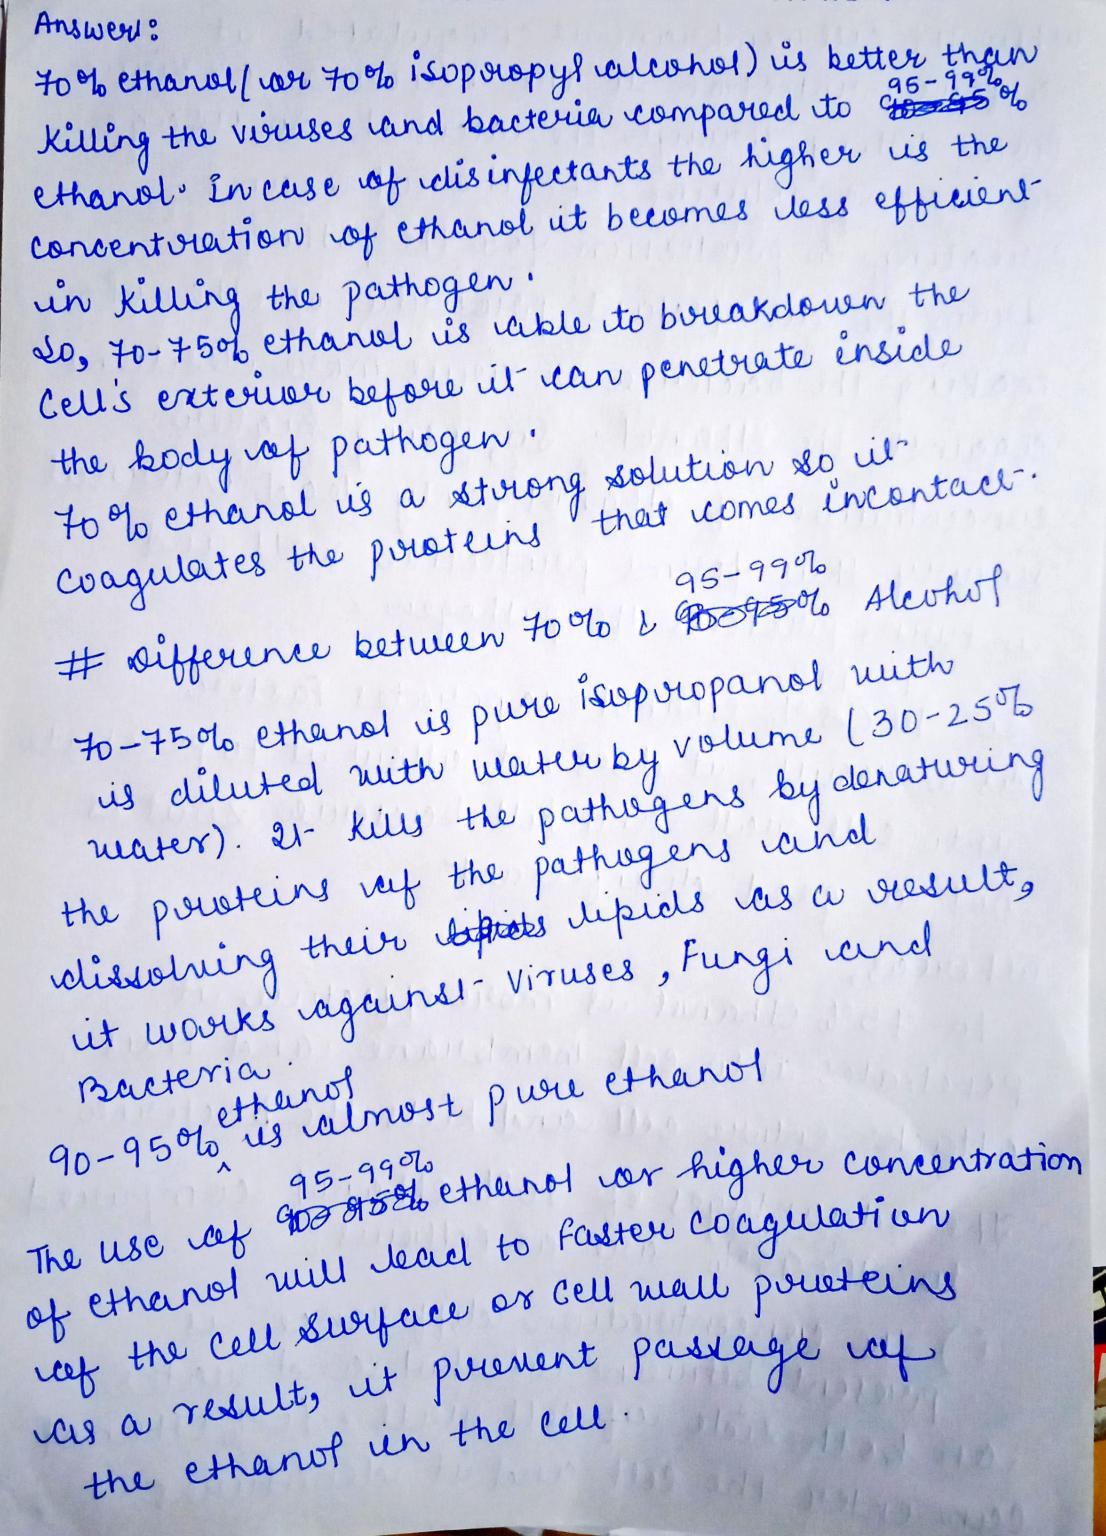 Answer:
70% ethanol (or 70% isopropyl alcohol) is better than
killing the viruses and bacteria compared to 95-99%
ethanol. In case of disinfectants the higher is the
concentration of ethanol it becomes less efficient
in killing the pathogen.
So, 70-75% ethanol is able to breakdown the
Cell's exterior before it can penetrate inside
the body of pathogen.
70% ethanol is a strong solution so it
coagulates the proteins that comes incontact.
# Difference between 70% & 95-99% Alcohol
70-75% ethanol is pure isopropanol with
is diluted with water by volume (30-25%
water). It kills the pathogens by denaturing
the proteins of the pathogens and
dissolving their lipids as a result,
it works against viruses, Fungi and
Bacteria.
90-95% ethanol is almost pure ethanol
The use of 95-99% ethanol or higher concentration
of ethanol will lead to faster coagulation
of the cell surface or cell wall proteins
as a result, it prevent passage of
the ethanol in the cell.